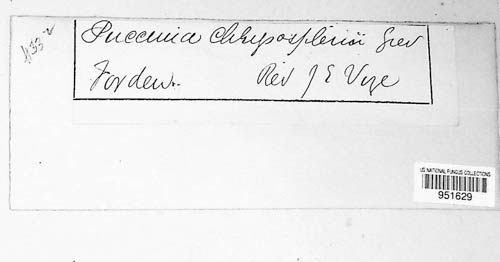 Puccinia chrysosplenii Grev
Forden.. Rev J E Vize
US NATIONAL FUNGUS COLLECTIONS
951629